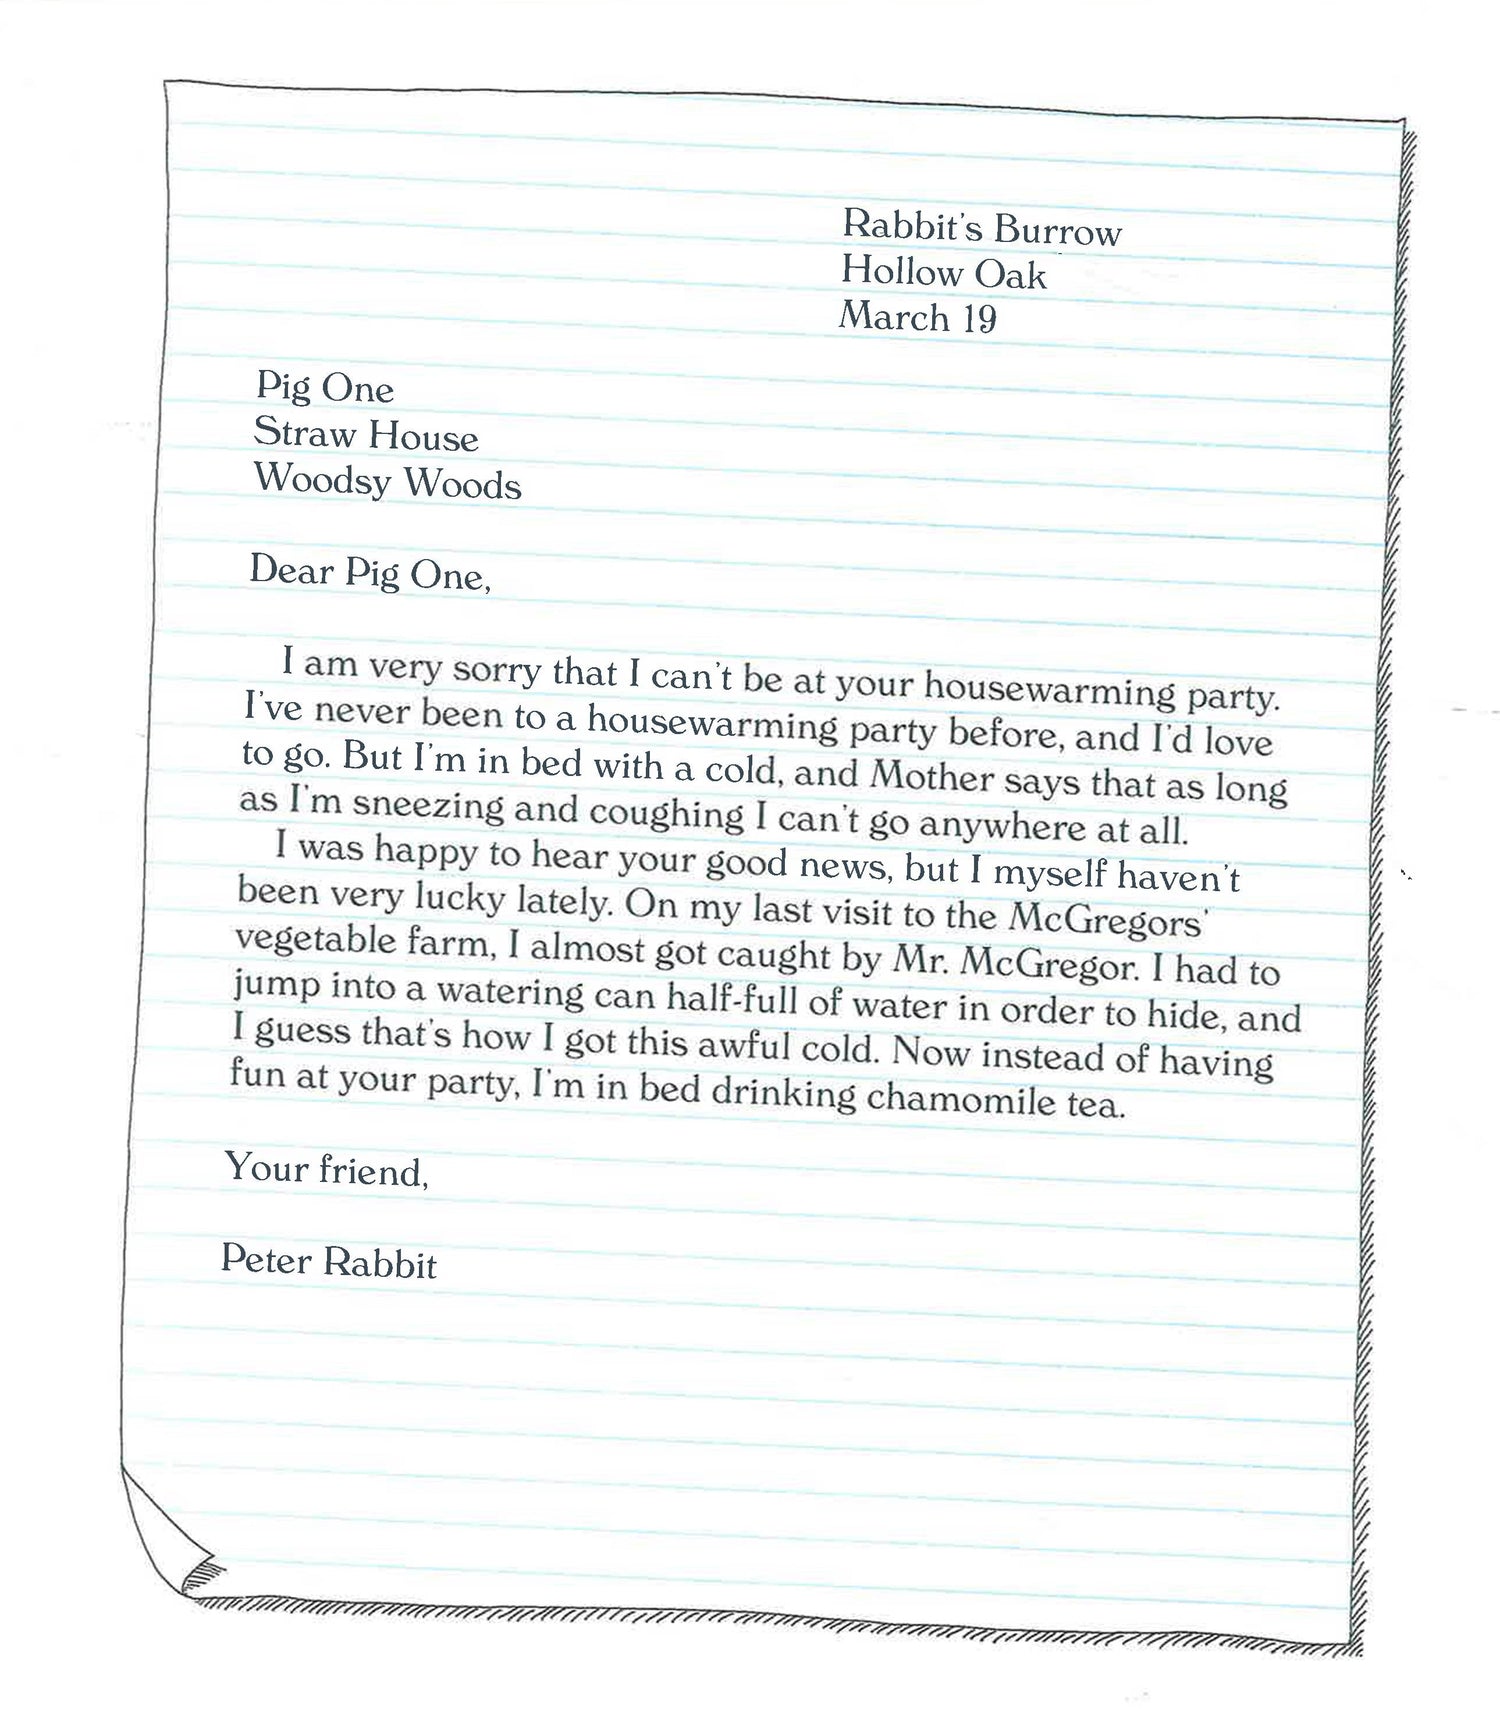 Rabbit's Burrow
Hollow Oak
March 19
Pig One
Straw House
Woodsy Woods
Dear Pig One,
I am very sorry that I can't be at your housewarming party.
I've never been to a housewarming party before, and I'd love
to go. But I'm in bed with a cold, and Mother says that as long
as I'm sneezing and coughing I can't go anywhere at all.
I was happy to hear your good news, but I myself haven't
been very lucky lately. On my last visit to the McGregors'
vegetable farm, I almost got caught by Mr. McGregor. I had to
jump into a watering can half-full of water in order to hide, and
I guess that's how I got this awful cold. Now instead of having
fun at your party, I'm in bed drinking chamomile tea.
Your friend,
Peter Rabbit